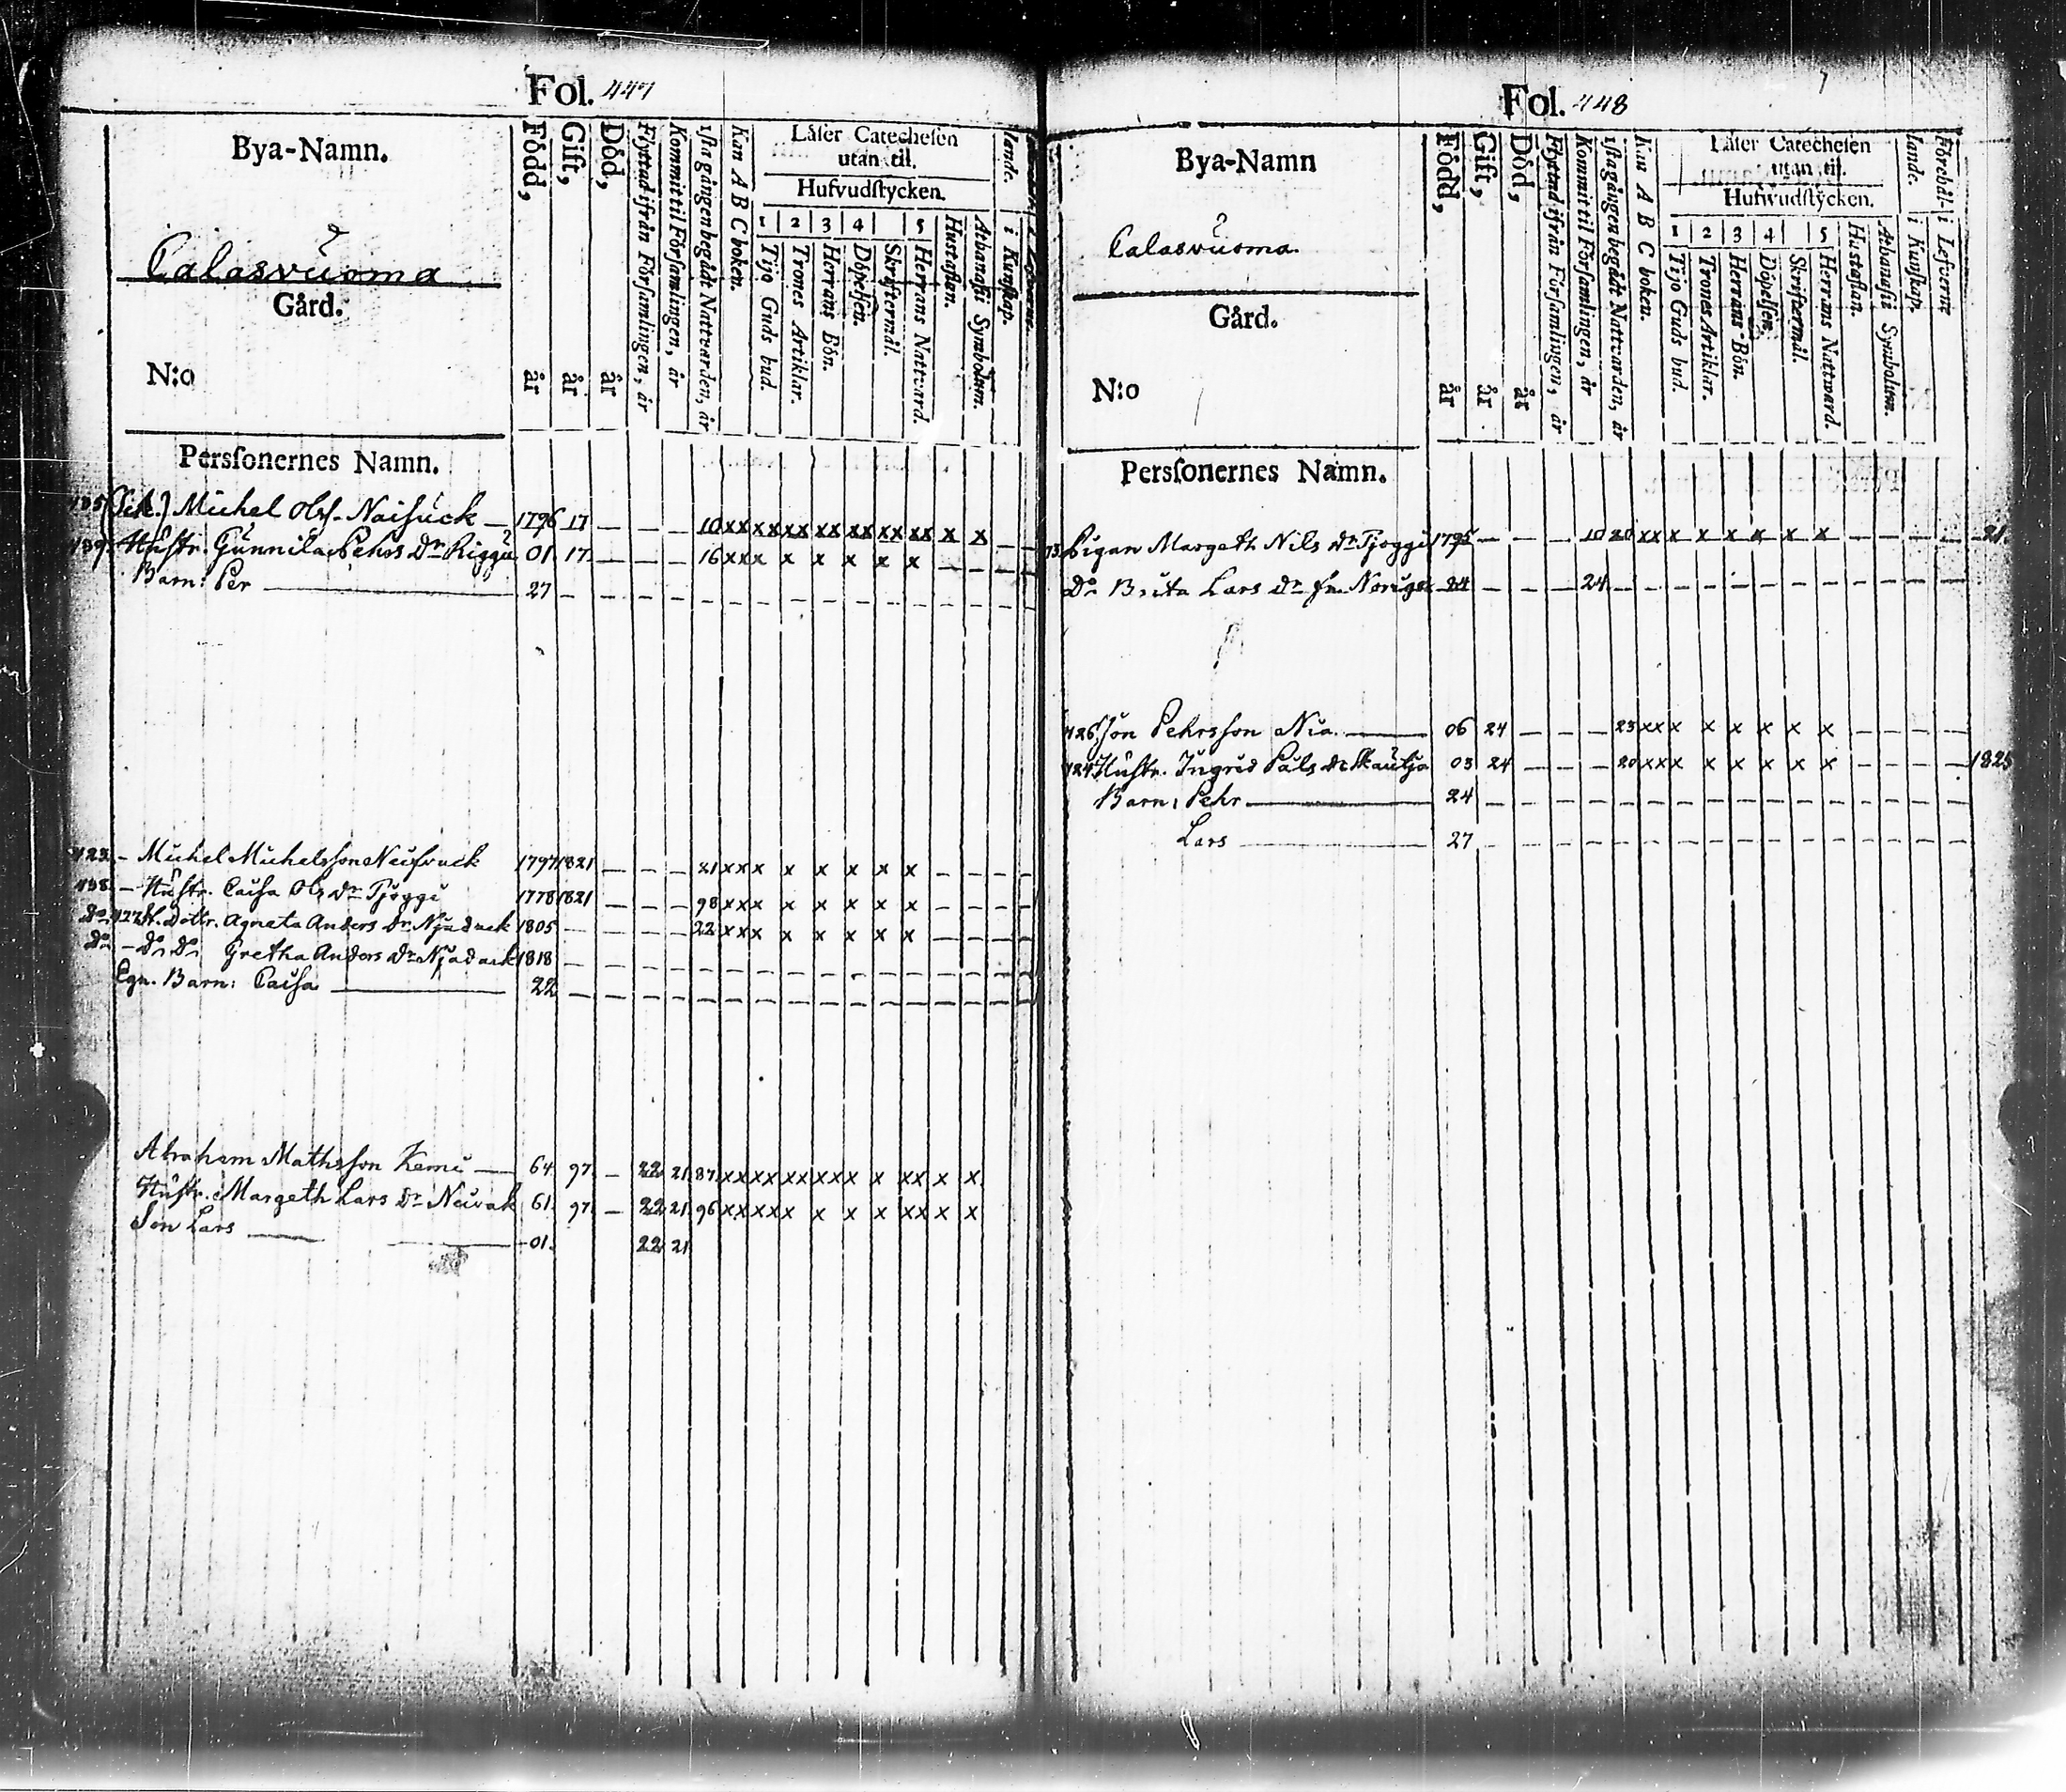 Fol. 447
Bya-Namn.
Calasvuoma
Gård.
N:o
Född, år
Gift, år
Död, år
Flyttad ifrån Församlingen, år
Kommit til Församlingen, år
1sta gången begådt Nattvarden, år
Kan A B C boken.
Läser Catechesen
utan til.
Hufvudstycken.
1 2 3 4 5
Tijo Guds bud.
Trones Artiklar.
Herrans Bön.
Döpelsen.
Skriftermål.
Herrans Nattvard.
Hustaflan.
Athanasii Symbolum.
i Kunskap.
Perssonernes Namn.
Michel Ols. Naisuck — 1796 17 — — — 10 xx xx xx xx xx xx xx x x
Hustr. Gunnila Pehrs Dr Riggu 01 17 — — — 16 xxx x x x x x — —
Barn: Per — 27
423 – Michel Michelsson Neisuck 1797 1821 — — — 21 xxx x x x x x — —
– Hustr. Caisa Ols Dr Tjoggi 1778 1821 — — — 98 xxx x x x x x — —
Do 427 H. Dottr. Agneta Anders Dr Njaduck 1805 — — — — 22 xxx x x x x x — —
Do – Do Do Gretha Anders Dr Njaduck 1818
Egn. Barn: Caisa — 22
Abraham Mathsson Kemi — 64 97 — 22 21 87 xx xx xx xxx x xx x x
Hustr. Margeth Lars Dr Neivak 61 97 — 22 21 96 xx xxx x x x xx x x
Son Lars — 01 22 21
Fol. 448
Bya-Namn
Calasvuoma
Gård.
N:o
Född, år
Gift, år
Död, år
Flyttad ifrån Församlingen, år
Kommit til Församlingen, år
1sta gången begådt Nattvarden, år
Kan A B C boken.
Läser Catechesen
utan til.
Hufwudstycken.
1 2 3 4 5
Tijo Guds bud.
Trones Artiklar.
Herrans Bön.
Döpelsen.
Skriftermål.
Herrans Nattward.
Hustaflan.
Athanasii Symbolum.
i Kunskap.
i Lefverne
Perssonernes Namn.
Pigan Margeth Nils Dr Tjoggi 1795 — — — 10 20 xx x x x x x x — — 21.
Do Brita Lars Dr fr. Norige 24 — — — 24
426 Jon Pehrsson Nia — 06 24 — — — 23 xxx x x x x x — —
424 Hustr. Ingrid Påls Dr Skaulja 03 24 — — — 20 xxx x x x x x — — 1825
Barn: Pehr — 24
Lars — 27